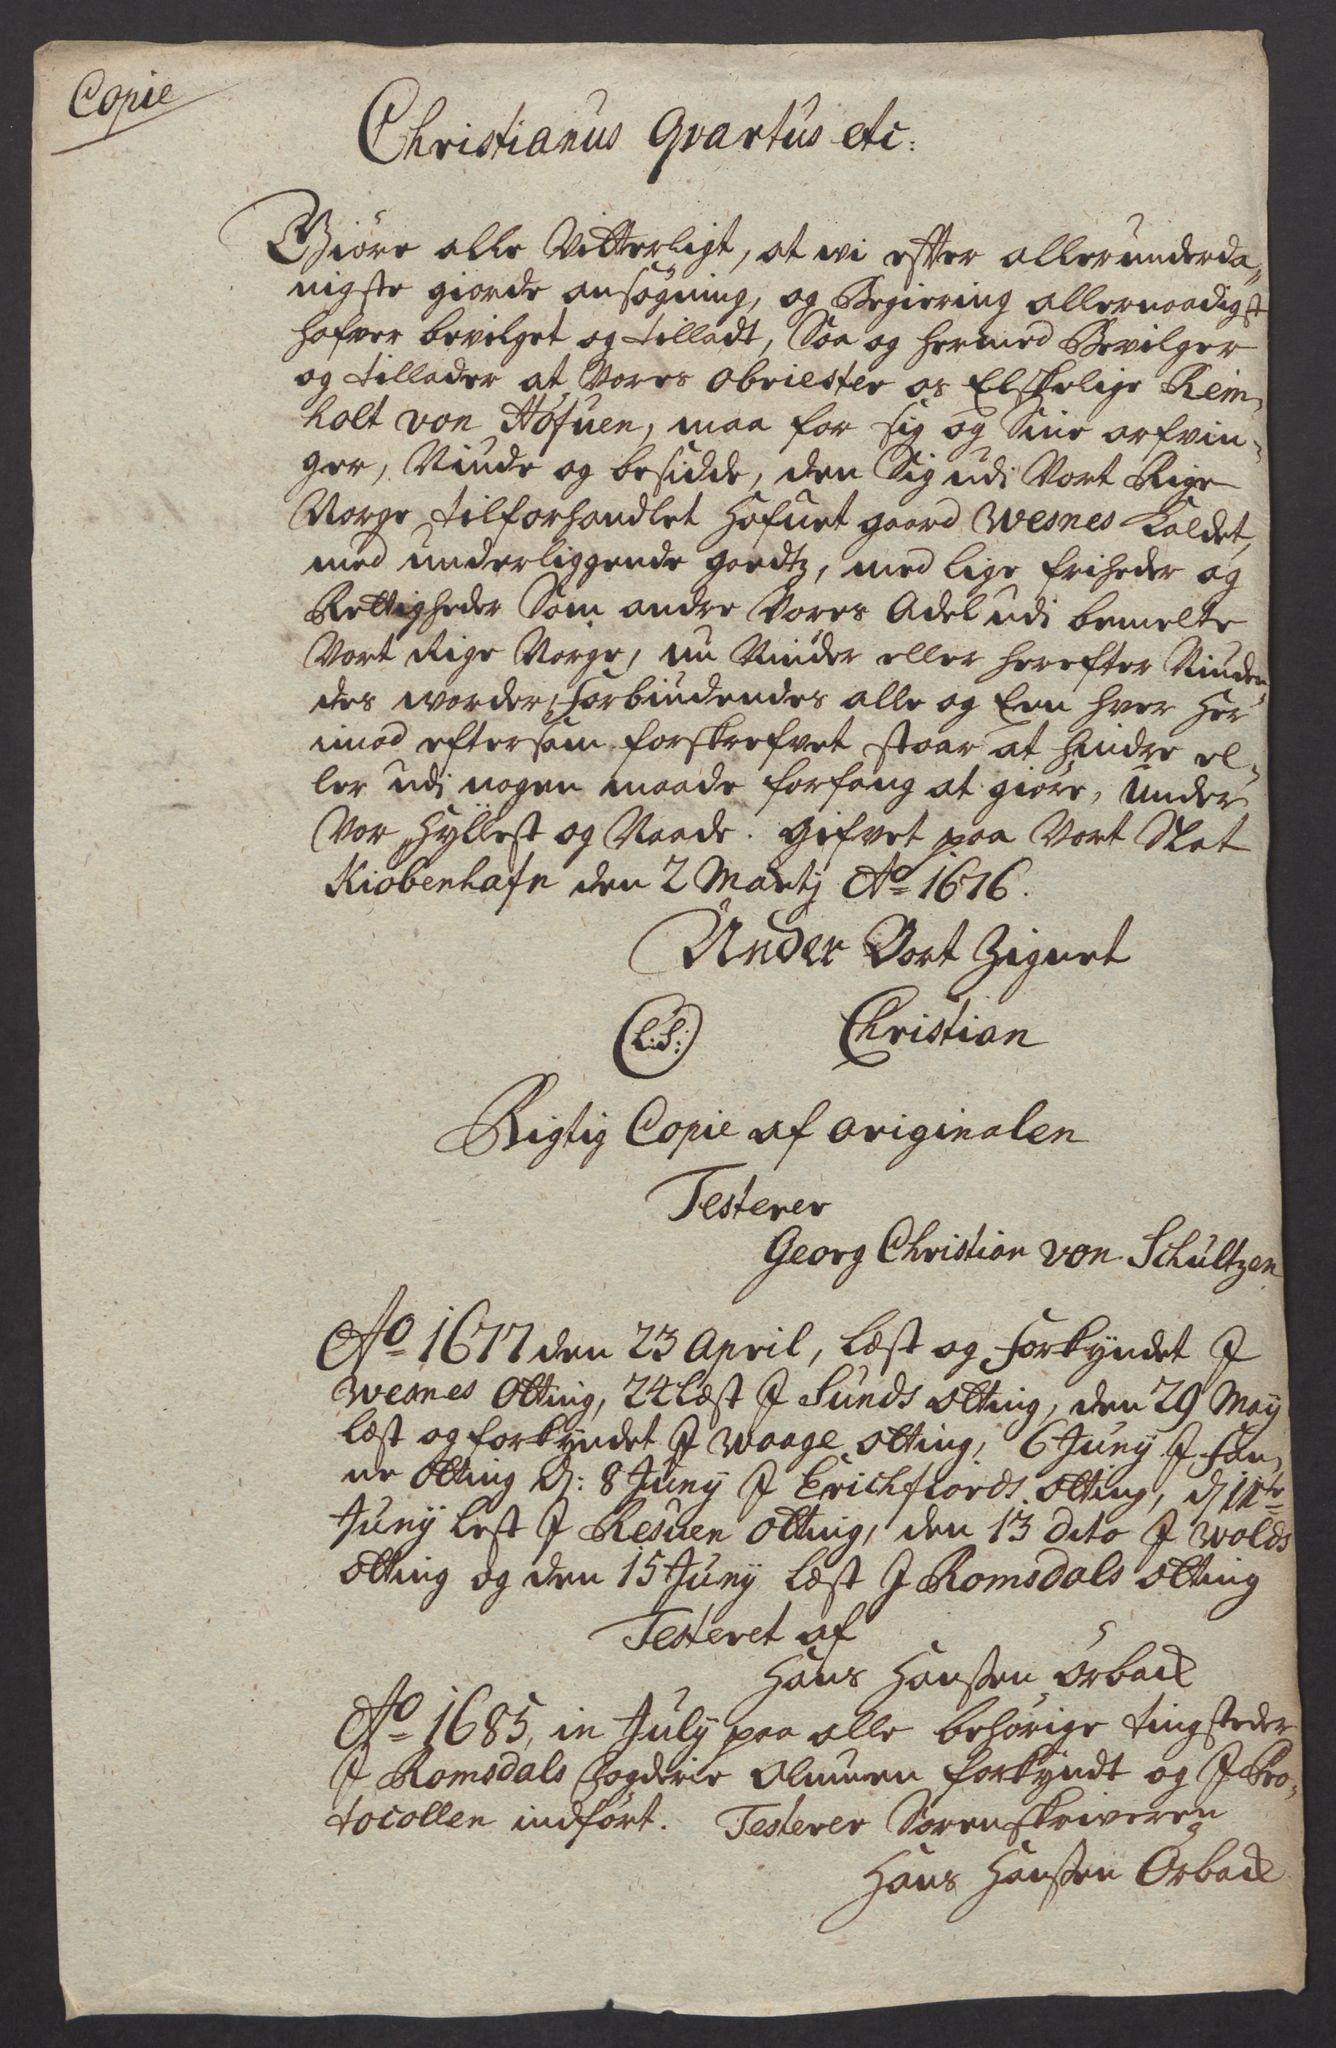 Copie
Christianus Qvartus etc:
Giöre alle Vitterligt, at wi efter allerunderda„
nigste giorde ansøgning, og Begiering allernaadigst
hafver bevilget og tilladt, Saa og hermed Bevilger
og tillader at Vores obriester os Elskelige Rein„
holt von Hofuen, maa for sig og Sine arfvin„
ger, Niude og besidde, den Sig udi Vort Rige
Norge tilforhandlet Hafuet gaard Wesnes kaldet,
med underliggende goedtz, med lige friheder og
Rettigheder Som andre Vores Adel udi bemelte
Vort Rige Norge, nu Niuder eller herefter Niuden„
des worder, Forbiudendes alle og Een hver Her
imod eftersom forskrefvet staar at hindre el„
ler udi nogen maade forfang at giöre, Under
Vor Hyllest og Naade. Gifvet paa Vort Slot
Kiobenhafn den 2 Martij Ao 1676.
Under Vort Zignet
(L:S:) Christian
Rigtig Copie af originalen
Testerer
Georg Christian von Schultzen
Ao 1677 den 23 April, læst og Forkyndet J
Wesnes Otting, 24 læst J Sunds otting, den 29 Maÿ
læst og forkyndet J Waage otting, 6 Junÿ J Fan„
ne Otting d: 8 Junÿ J Erichfiords Otting, d 11te
Junÿ læst J Resuen Otting, den 13 dito J Wolds
otting og den 15 Junÿ læst J Romsdals otting
Testeret af
Hans Hanssen Örback
Ao 1685, in Julÿ paa alle behörige tingsteder
J Romsdals fogderie Almuen forkyndt og J Pro„
tocollen indfört. Testerer Sorenskriveren
Hans Hanssen Örback